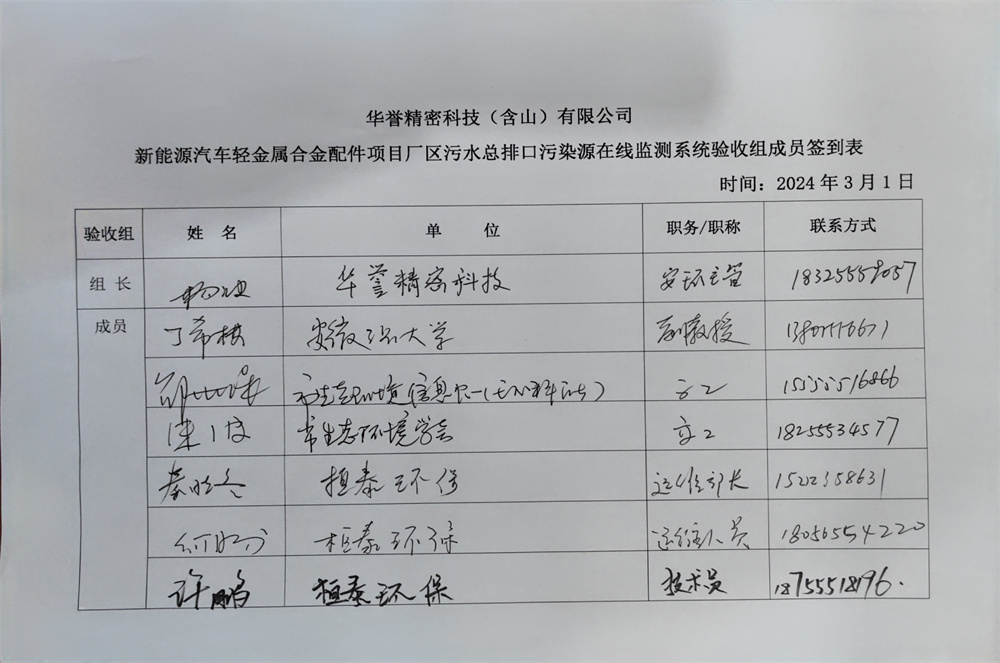 华誉精密科技（含山）有限公司
新能源汽车轻金属合金配件项目厂区污水总排口污染源在线监测系统验收组成员签到表
时间：2024 年 3 月 1 日
验收组 姓 名 单 位 职务/职称 联系方式
组 长 华誉精密科技 安环主管 18325559057
成员 丁希楼 安徽工业大学 副教授
市生态环境信息 高工 15555516866
市生态环境学会 高工 18255534577
秦 桓泰环保 运维部长
桓泰环保 运维人员 18056554220
许鹏 桓泰环保 技术员 18755518196.